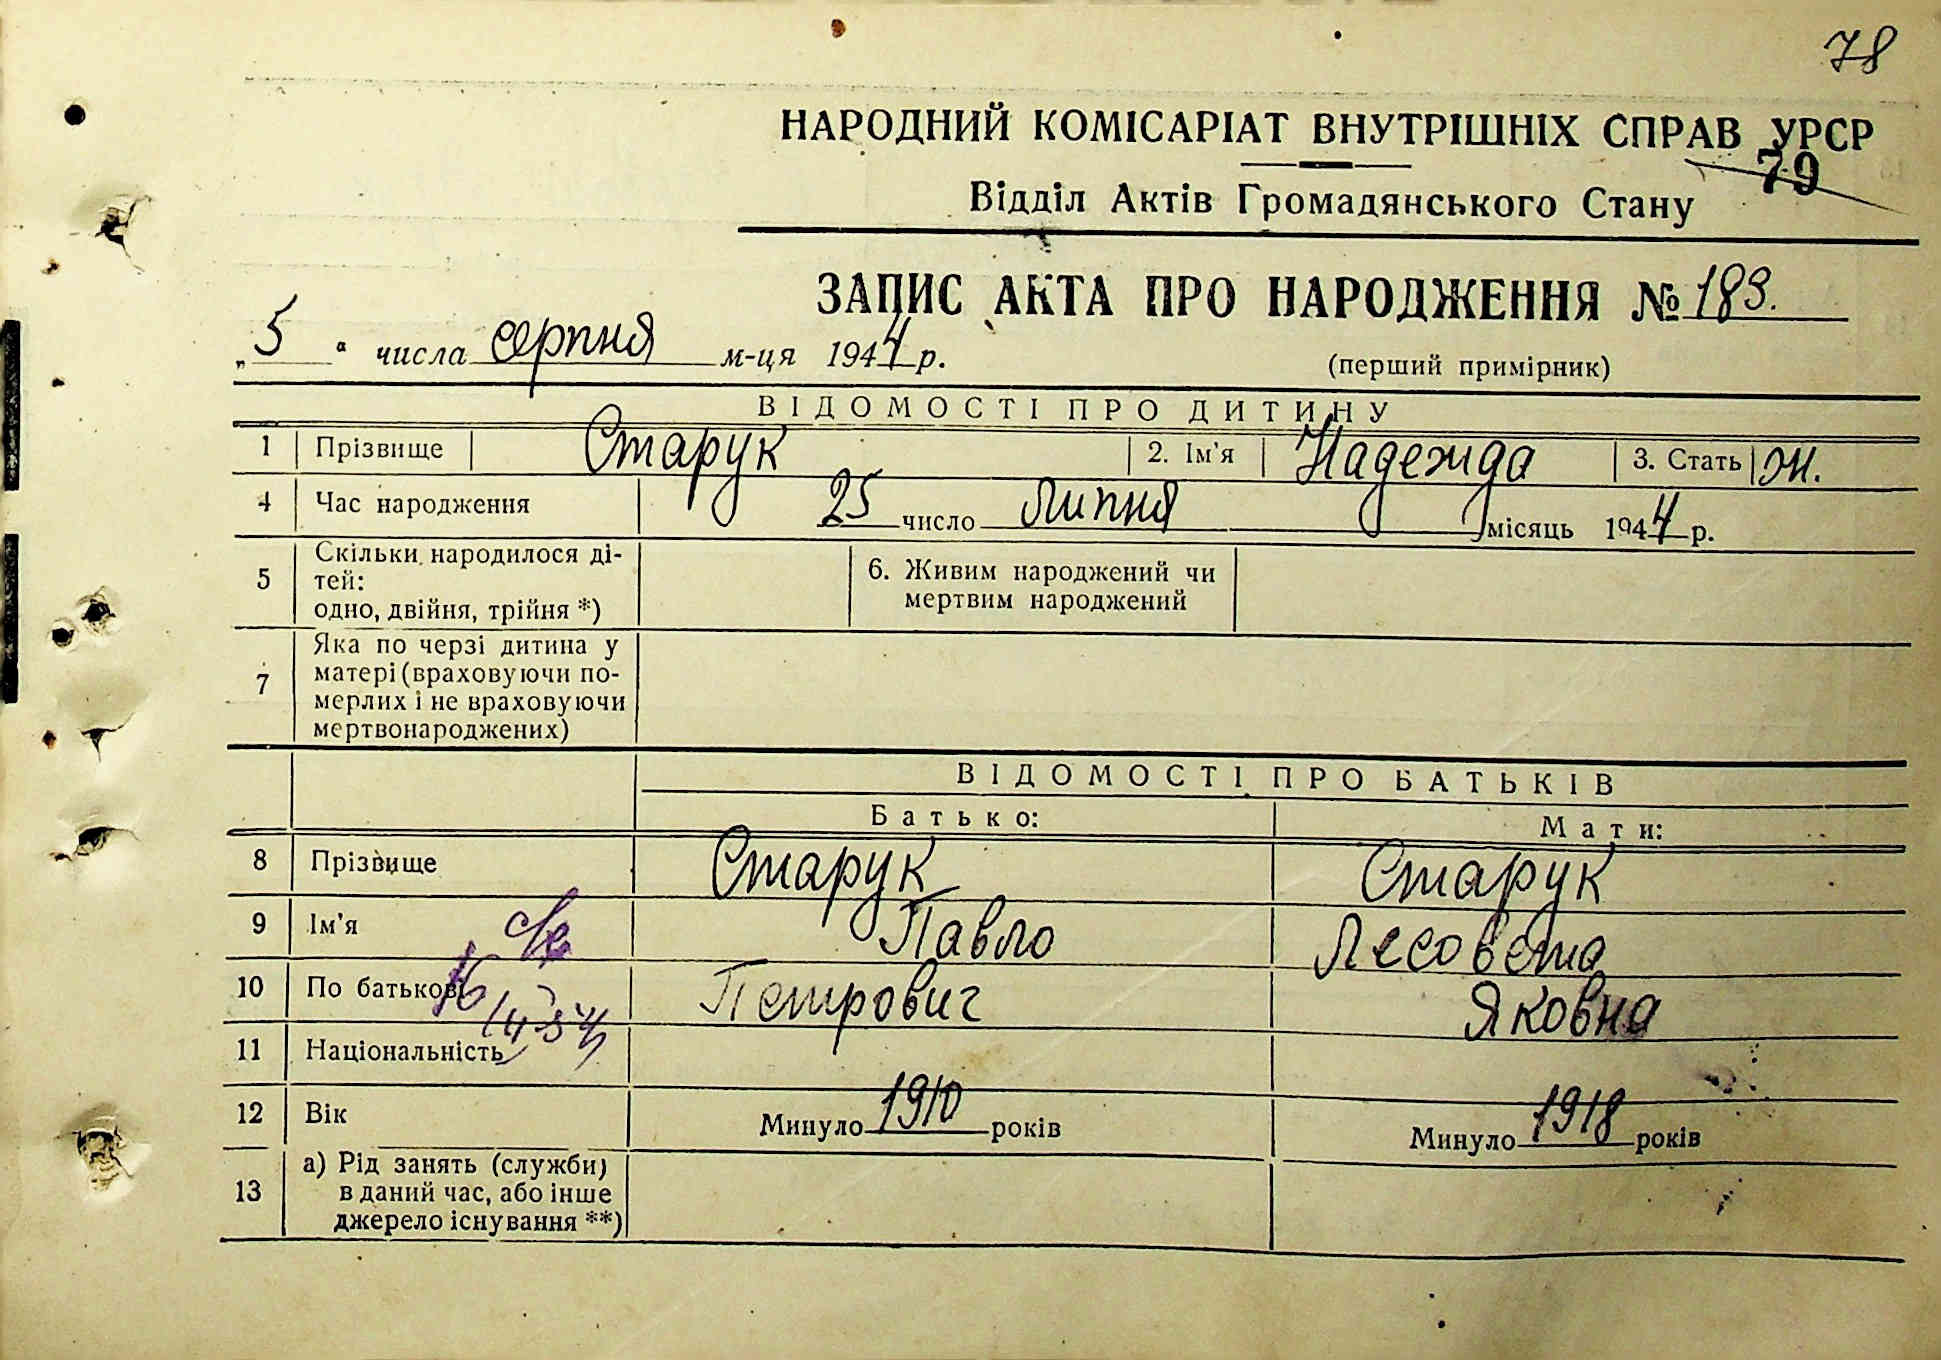 78
НАРОДНИЙ КОМІСАРІАТ ВНУТРІШНІХ СПРАВ УРСР
79
Відділ Актів Громадянського Стану
ЗАПИС АКТА ПРО НАРОДЖЕННЯ № 183.
„5“ числа серпня м-ця 1944 р.
(перший примірник)
ВІДОМОСТІ ПРО ДИТИНУ
1 Прізвище Старук 2. Ім'я Надежда 3. Стать Ж.
4 Час народження 25 число липня місяць 1944 р.
5 Скільки народилося ді-
тей:
одно, двійня, трійня *)
6. Живим народжений чи
мертвим народжений
7 Яка по черзі дитина у
матері (враховуючи по-
мерлих і не враховуючи
мертвонароджених)
ВІДОМОСТІ ПРО БАТЬКІВ
Батько: Мати:
8 Прізвище Старук Старук
9 Ім'я Павло Лесовета
10 По батькові Петрович Яковна
11 Національність
12 Вік Минуло 1910 років Минуло 1918 років
13 а) Рід занять (служби)
в даний час, або інше
джерело існування **)